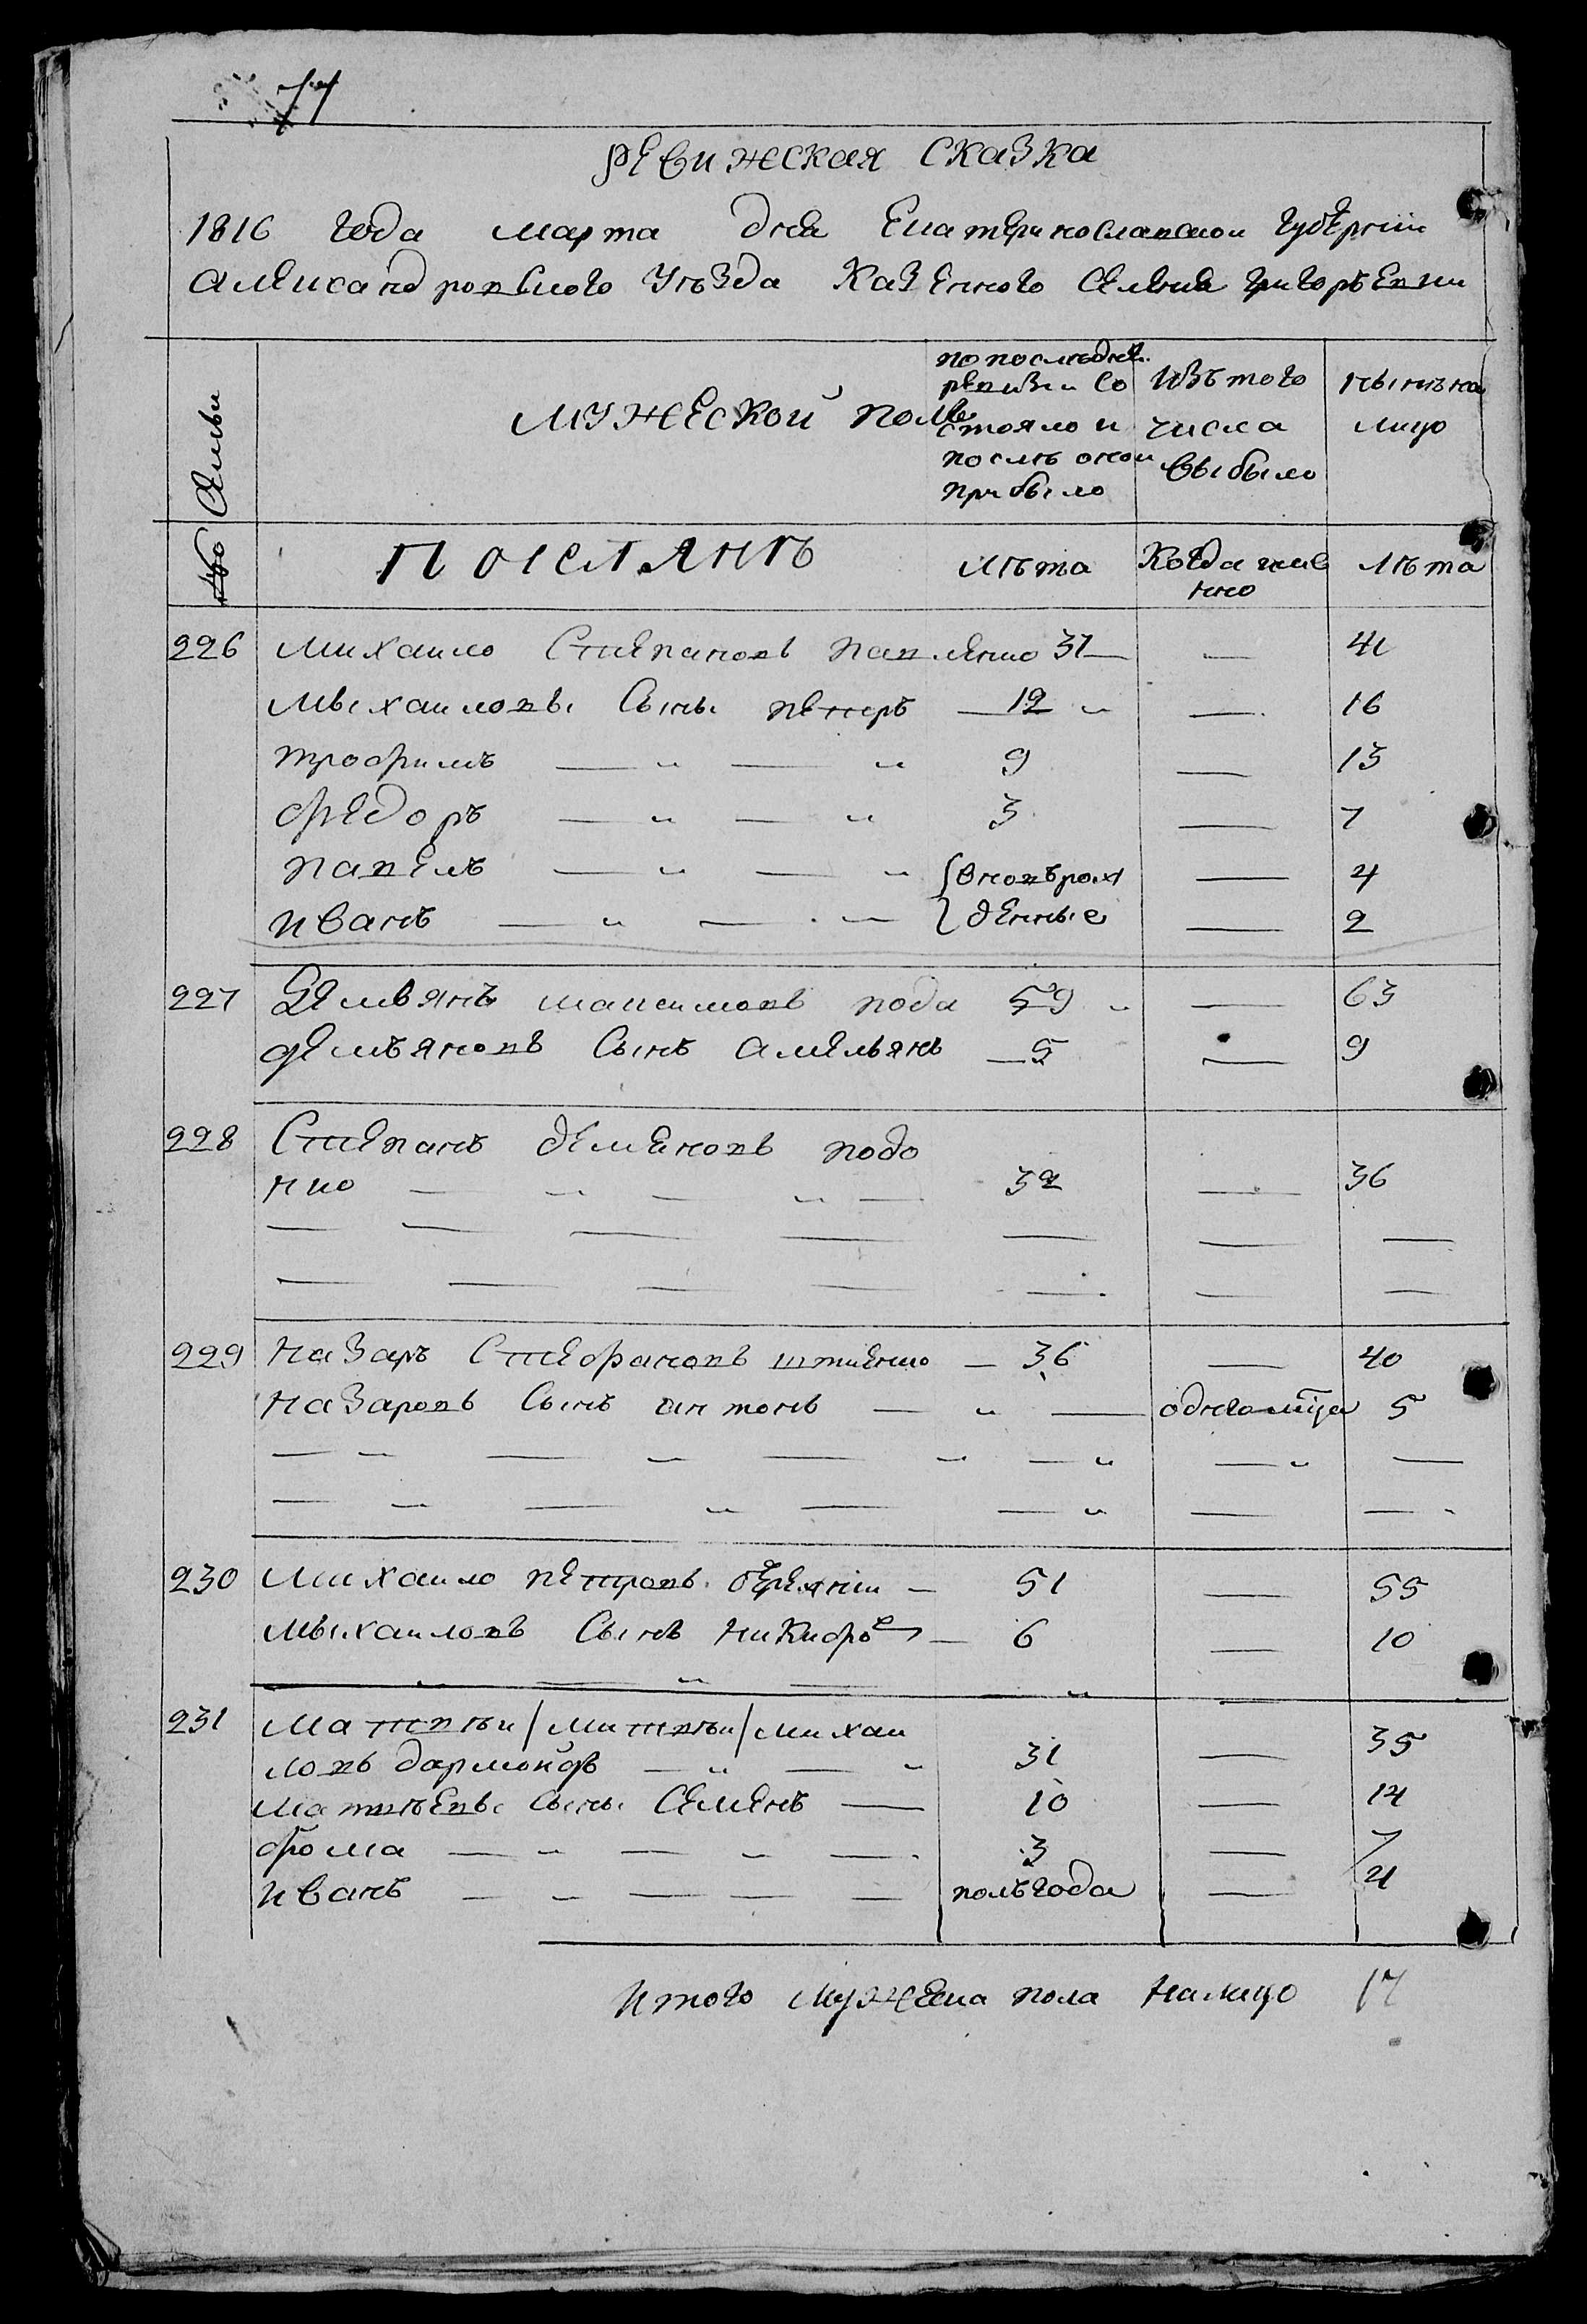 77
ревижская сказка
1816 года марта дня Екатеринославской губерніи
александровского уезда казенного селения григорьевки
Семьи
мужеской полъ
по последней ревизіи состояло и после оной прибыло
изъ того числа выбыло
ныне на лицо
№
поселянъ
лѣта
Когда именно
лѣта
226 михаило Степановъ павленко 37 — 41
мыхаиловы Сыны петеръ — 12 — 16
трофимъ — „ — „ 9 — 13
федоръ — „ — „ 3 — 7
павелъ — „ — „ вновърож — 4
иванъ — „ — . — денные — 2
227 Демьянъ максимовъ вода 59 „ — 63
демъяновъ Сынъ амельянъ — 5 — 9
228 Степанъ деменовъ водо
нко — „ — „ — 32 — 36
229 назаръ Стефановъ — 36 — 40
назаровъ Сынъ антонъ — „ — одного мца 5
230 михаило петровъ — 51 — 55
мыхаиловъ Сынъ никифоръ — 6 — 10
231 матвѣи/митвѣи/михаи
ловъ — „ — „ 31 — 35
матвѣевы Сыны Семенъ — 10 — 14
фома — „ — „ — . 3 — 7
иванъ — „ — — — полъгода — 4
итого мужеска пола налицо 17